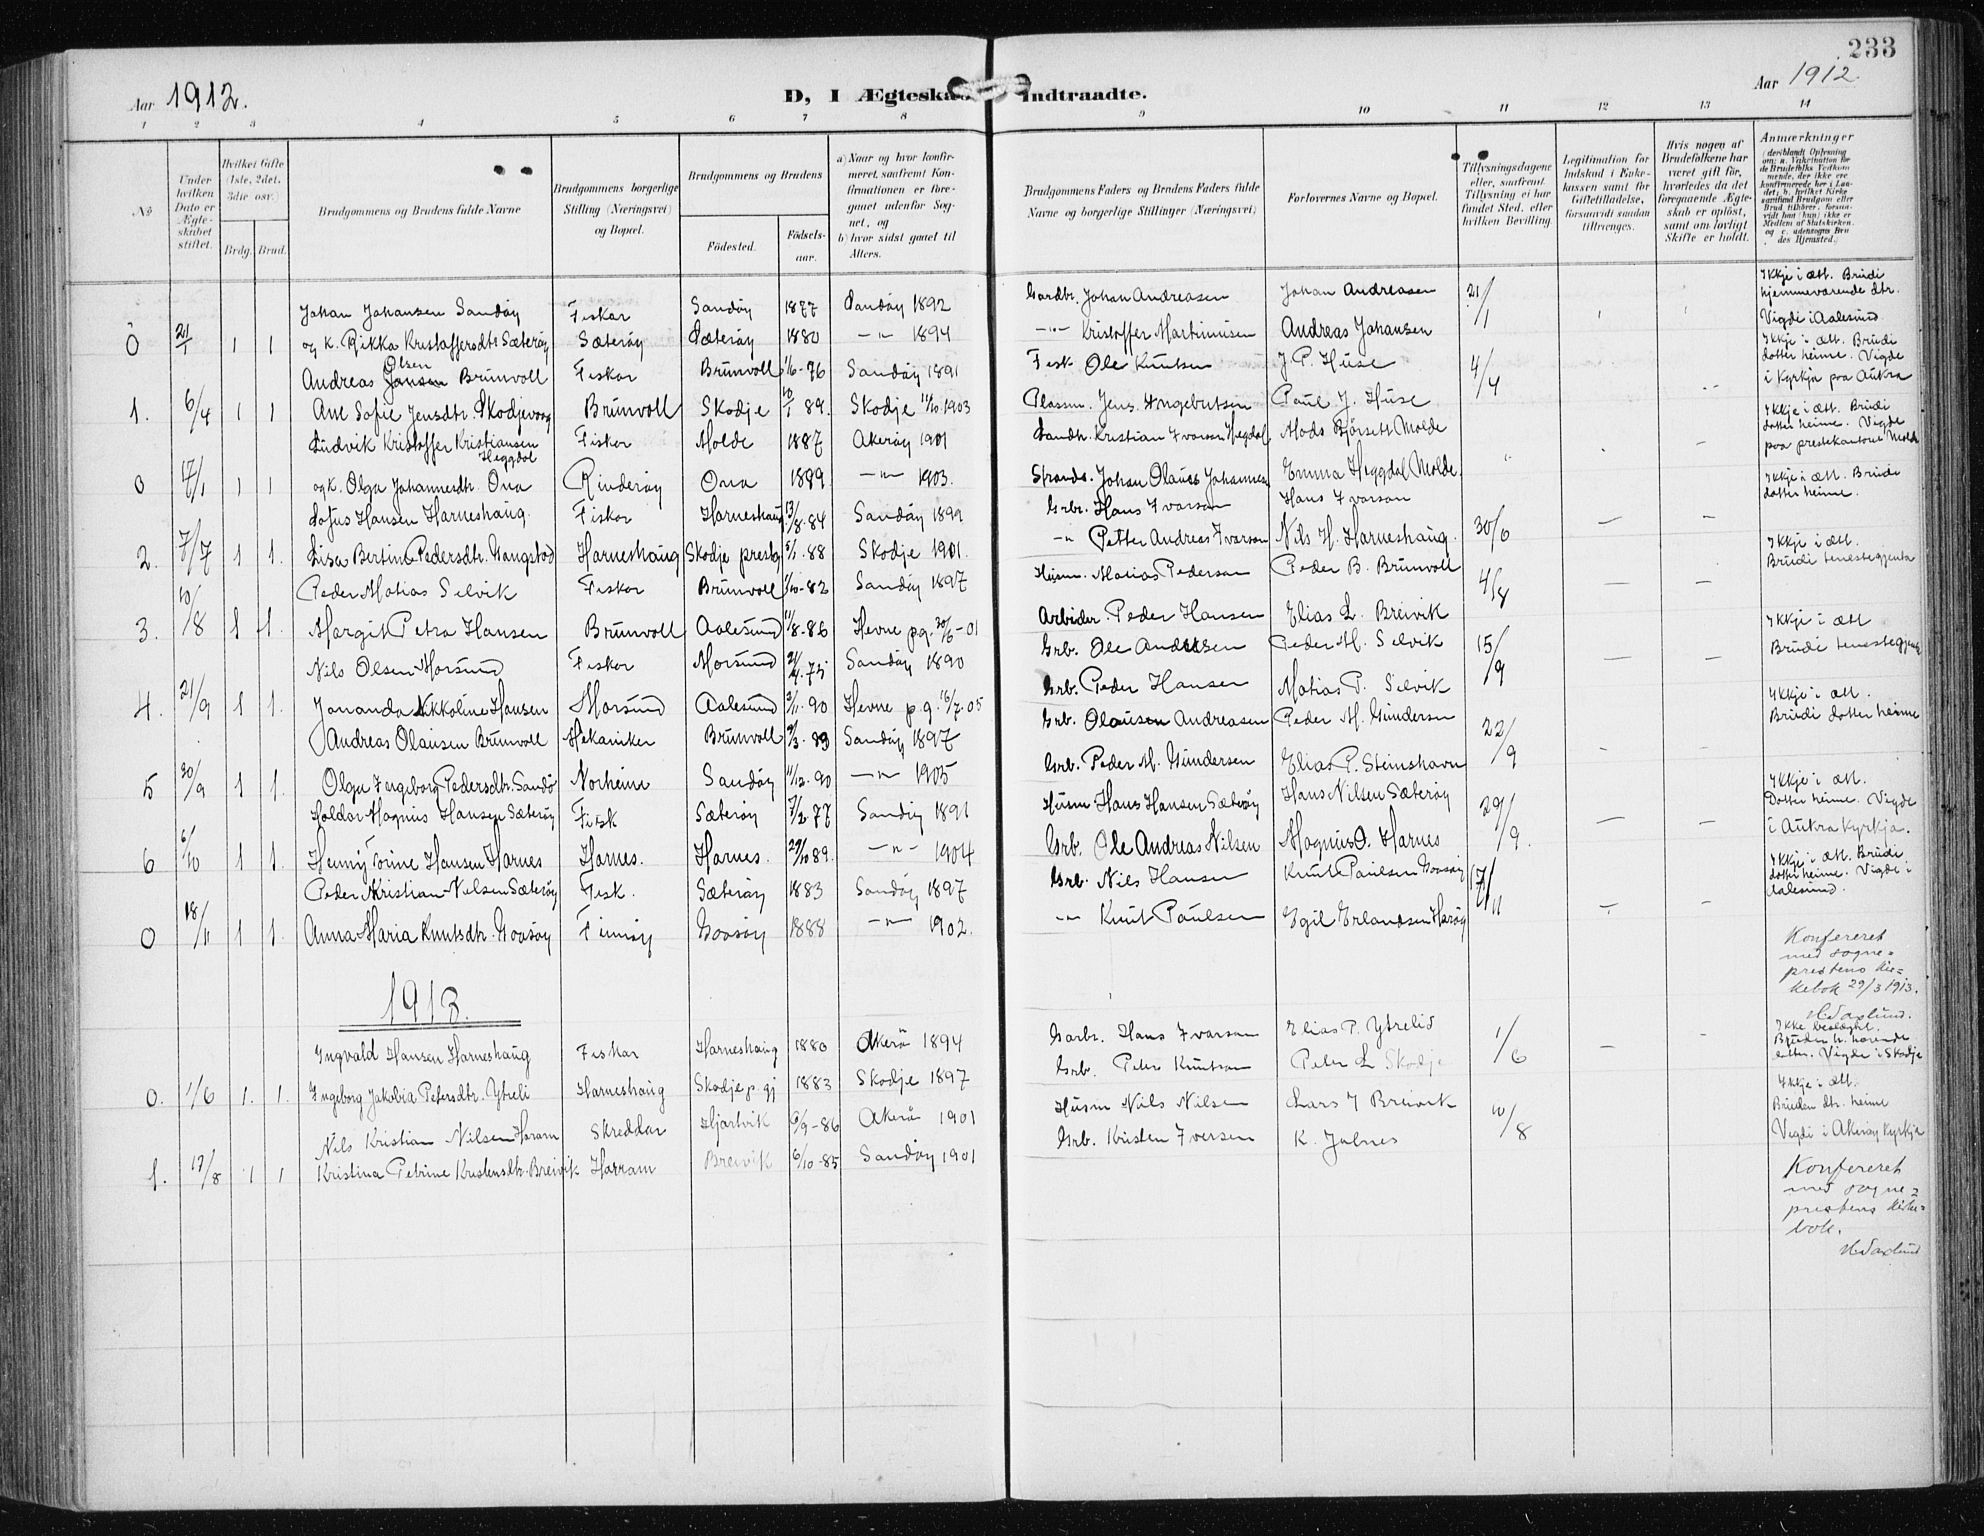 233
Aar 1912.
D, I Ægteskab Indtraadte.
Aar 1912.
1 2 3 4 5 6 7 8 9 10 11 12 13 14
No
Under hvilken Dato er Ægteskabet stiftet.
Hvilket Gifte (1ste, 2det, 3die osv.)
Brdg. Brud.
Brudgommens og Brudens fulde Navne
Brudgommens borgerlige Stilling (Næringsvei) og Bopæl.
Brudgommens og Brudens
Fødested.
Fødsels-aar.
a) Naar og hvor konfirmeret, samt om Konfirmationen er foregaaet udenfor Sognet, og
b) hvor sidst gaaet til Alters.
Brudgommens Faders og Brudens Faders fulde Navne og borgerlige Stillinger (Næringsvei)
Forlovernes Navne og Bopæl.
Tillysningsdagene eller, saafremt Tillysning ei har fundet Sted, efter hvilken Bevilling
Legitimation for Indskud i Enkekassen samt for Giftetilladelse, forsaavidt saadan tiltrænges.
Hvis nogen af Brudefolkene har været gift før, hvorledes da det foregaaende Ægteskab er opløst, samt om lovligt Skifte er holdt.
Anmærkninger
Johan Johansen Sandöy Fiskar Sandöy 1877 Sandöy 1892 Gardbr. Johan Andreasen Johan Andreasen 21/1 Ikkje i ætt. Brudi hjemmeværende dtr. Vigdi i Aalesund
0 21/1 1 1 og K. Rikka Kristoffersdtr Sæteröy Sæteröy Sæteröy 1880 -"- 1894 -"- Kristoffer Martinusen Andreas Johansen
Andreas Olsen Brunvoll Fiskar Brunvoll 1/6-76 Sandöy 1891 Fisk Ole Knutsen J. P. Huse 4/4 Ikkje i ætt. Brudi dotter heime. Vigde i Kyrkja paa Aukra
1. 6/4 1 1 Ane Sofie Jensdtr. Skodjevaag Brunvoll Skodje 10/1 89. Skodje 11/10.1903 Plassm. Jens Ingebritsen Paul J. Huse
Ludvik Kristoffer Kristiansen Heggdal Fiskar Molde 1887 Akeröy 1901 Landh. Kristian Ivarsen Hegdal Mads Björsett Molde Ikkje i ætt. Brudi dotter heime. Vigde paa prestekantoret Molde
0 17/1 1 1 og K. Olga Johannesdtr. Ona Rinderöy Ona 1889. -"- 1903. Strands. Johan Olaus Johannesen Emma Heggdal Molde.
Lofus Hansen Harneshaug. Fiskar Harneshaug 13/8.84 Sandöy 1899 Grbr. Hans Ivarson Hans Ivarson 30/6 Ikkje i ætt. Brudi dotter heime.
2. 7/7 1 1. Lisa Bertine Pedersdtr. Vangstad Harneshaug Skodje prestg 5/1.88 Skodje 1901. -"- Petter Andreas Ivarson Nils H. Harneshaug.
Peder Matias Selvik Fiskar Brunvoll 1/10-82 Sandöy 1897 Husm. Matias Pederson Peder B. Brunvoll 4/8 Ikkje i ætt. Brudi tenestegjenta
3. 10/8 1 1. Margit Petra Hansen Brunvoll Aalesund 11/8.86 Hevne pg. 30/6-01 Arbeider. Peder Hansen Elias L. Breivik
Nils Olsen Morsund Fiskar Morsund 21/4.75 Sandöy 1890 Grb. Ole Andersen Peder M. Selvik 15/9 Ikkje i ætt Brudi tenestegjenta
4. 21/9 1 1. Jonanda Nikkoline Hansen Morsund Aalesund 2/11.90 Hevne p.g. 16/7.05 Grb. Peder Hansen Matias P. Selvik
Andreas Olausen Brunvoll Mekaniker Brunvoll 2/3.83 Sandöy 1897 Grb. Olausen Andreasen Peder M. Gundersen 22/9 Ikkje i ætt. Brudi dotter heime
5 30/9 1 1. Olga Ingeborg Pedersdtr. Sandö Norheim Sandöy 11/12.90 -"- 1905 Grb. Peder M. Gundersen Elias P. Steinshavn
Haldor Magnus Hansen Sæteröy Fisk Sæteröy 7/2.77 Sandöy 1891 Husm Hans Hansen Sæteröy Hans Nilsen Sæteröy 29/9. Ikkje i ætt. Dotter heime. Vigde i Aukra Kyrkja.
6 6/10 1 1. Henny Torine Hansen Harnes Harnes. Harnes. 29/10 89. -"- 1904 Grb. Ole Andreas Nilsen Magnus O. Harnes
Peder Kristian Nilsen Sæteröy Fisk. Sæteröy 1883 Sandöy 1897 Grb. Nils Hansen Knut Paulsen Gaasöy 17/11 Ikkje i ætt. Brudi dotter heime. Vigdi i Aalesund.
0 18/11 1 1. Anna Maria Knutsdtr. Gaasöy Finnöy Gaasöy 1888 -"- 1902. -"- Knut Paulsen Egil Erlandsen Haröy
Konfereret med sogneprestens kirkebok 29/3 1913.
1913.
Ingvald Hansen Harneshaug Fiskar Harneshaug 1880 Akerö 1894 Garbr. Hans Ivarson Elias P. Ytrelid 1/6 Ikke beslægt. Vigde i Skodje
0. 1/6 1. 1. Ingeborg Jakobia Petersdtr. Ytreli Harneshaug Skodje p.gj 1883 Skodje 1897 Grb. Peter Knutson Peter L Skodje
Nils Kristian Nilsen Haram Skreddar Hjartvik 9/9-86 Akerö 1901 Husm Nils Nilsen Lars J Breivik 10/8 Ikkje i ætt. Bruden dtr. heime Vigdi i Akeröy kyrkja
1. 17/8 1 1 Kristina Petrine Kristensdtr. Breivik Harram Breivik 6/10-85 Sandöy 1901 Grb. Kristen Iversen K. Jalnes
Konfereret med sogneprestens kirkebok.